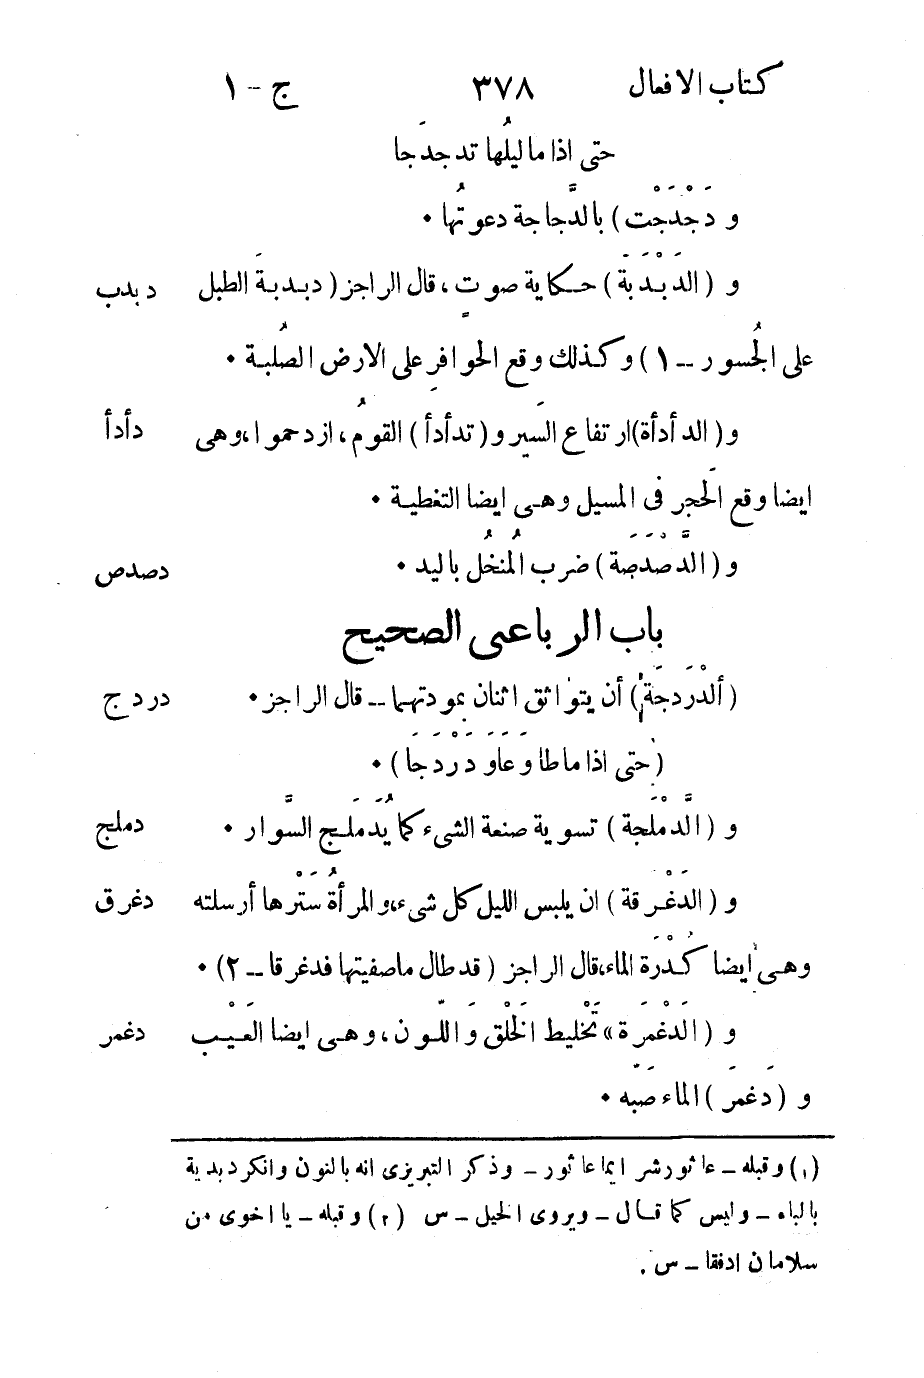 كتاب الافعال ٣٧٨ ج - ١
حتى اذا ما ليلُها تدجدَجا
و دَجْدَجْت ) بالدَّجاجة دعوتُها •
و ( الدَبْدَبَة ) حكاية صوتٍ ، قال الراجز ( دبدبةَ الطبل دبدب
على الجُسور – ١ ) وكذلك وقع الحوافرِ على الارض الصُلبة •
و ( الدأدأة) ارتفاع السَير و ( تدأدأ ) القومُ ، ازدحموا ، وهى دأدأ
ايضا وقع الحَجر فى المسيل وهى ايضا التغطية •
و ( الدَّصْدَصَة ) ضرب المُنخُل باليد • دصدص
باب الرباعى الصحيح
( ألدْرَدجَة ) أن يتواثق اثنان بمودتهما – قال الراجز • دردج
( حتى اذا ما طاوَعَاوَدَرْدَجَا ) •
و ( الدَّمْلَجة ) تسوية صنعة الشىء كما يُدَملَج السَّوار • دملج
و ( الدَغْرقة ) ان يلبس الليل كل شىء، والمرأةُ سَتْرها أرسلته دغرق
وهى ايضا كُدْرَة الماء، قال الراجز ( قد طال ما صفيتها فدغرقا – ٢) •
و ( الدَغْمَرَة » تَّخْليط الخَلْق وَاللّون ، وهى ايضا العَيْب دغمر
و ( دَغمَرَ ) الماء صَبَّه •
(١) وقبله – عاثور شر ايما عاثور – وذكر التبريزى انه بالنون وانكر دبدبة
بالباء – وليس كما قال – ويروى الخيل – س (٢) وقبله – يا اخوى من
سلامان ادفقا – س .